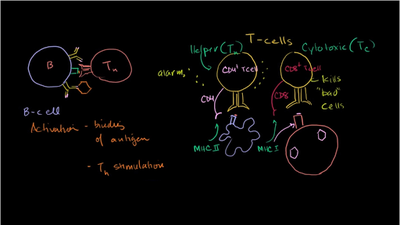 T-cells
Helper (Th)
Cytotoxic (Tc)
alarm
CD4+ T cell
CD8+ T cell
kills
"bad"
cells
CD4
CD8
MHC II
MHC I
B
Th
B-cell
Activation - binding
of antigen
- Th stimulation